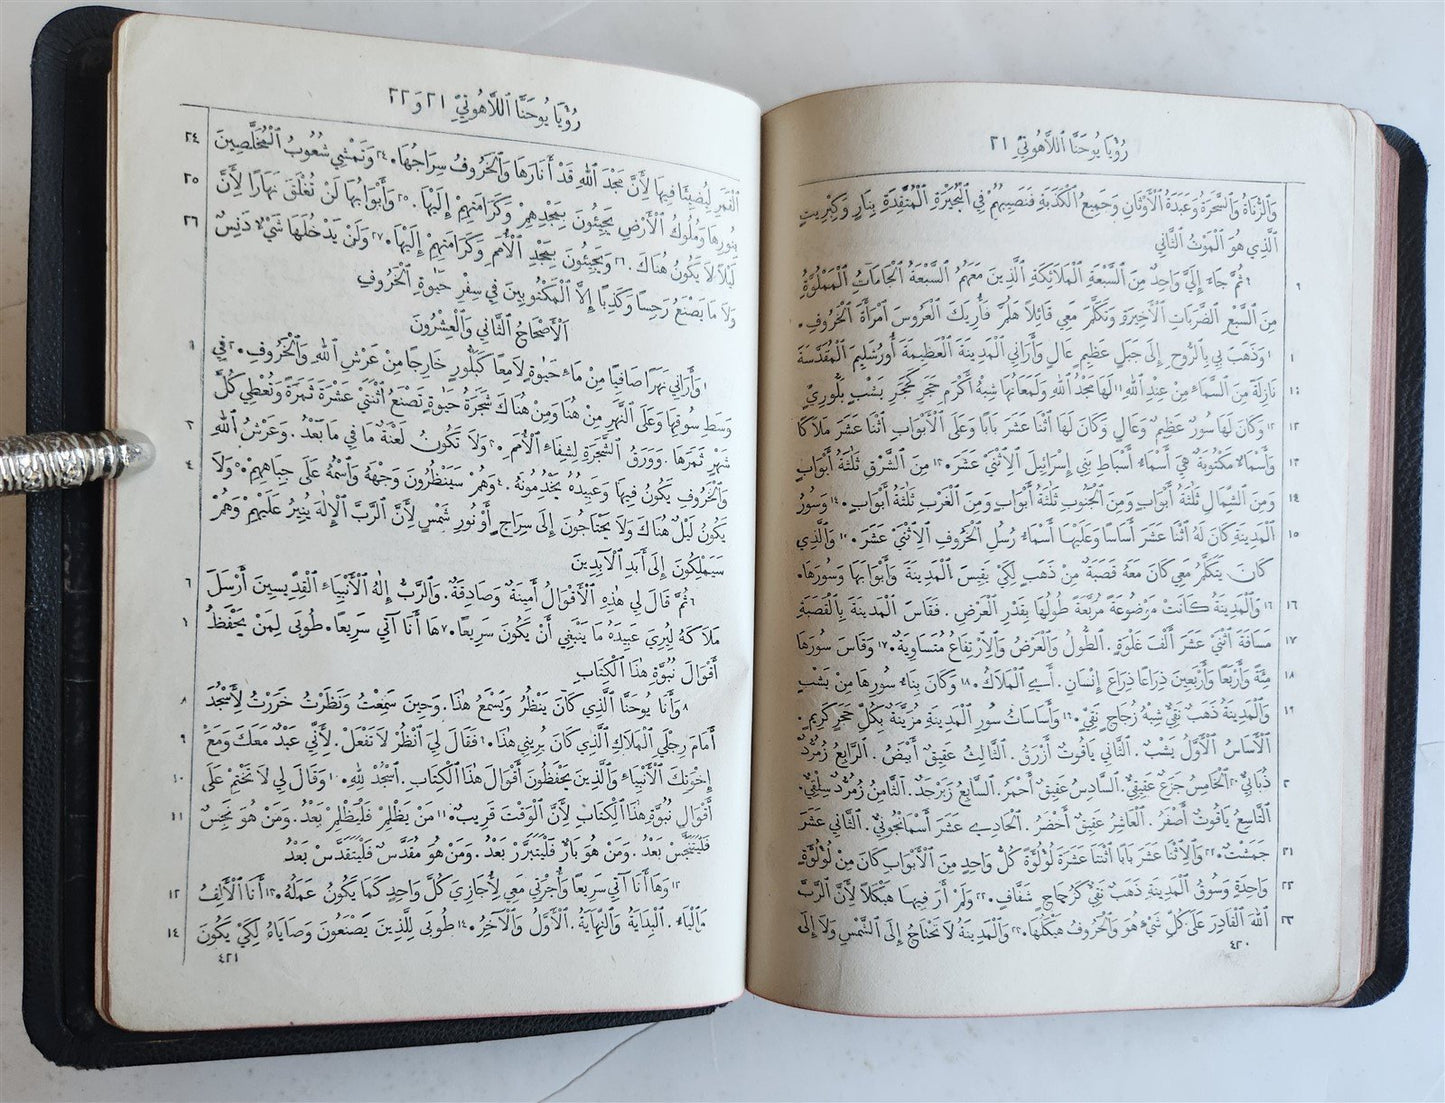 رُؤْيَا يُوحَنَّا ٱللَّاهُوتِيِّ ٢١
وَٱلزُّنَاةُ وَٱلسَّحَرَةُ وَعَبَدَةُ ٱلْأَوْثَانِ وَجَمِيعُ ٱلْكَذَبَةِ فَنَصِيبُهُمْ فِي ٱلْبُحَيْرَةِ ٱلْمُتَّقِدَةِ بِنَارٍ وَكِبْرِيتٍ
ٱلَّذِي هُوَ ٱلْمَوْتُ ٱلثَّانِي
٩ ٩ثُمَّ جَاءَ إِلَيَّ وَاحِدٌ مِنَ ٱلسَّبْعَةِ ٱلْمَلَائِكَةِ ٱلَّذِينَ مَعَهُمُ ٱلسَّبْعَةُ ٱلْجَامَاتُ ٱلْمَمْلُوَّةُ
مِنَ ٱلسَّبْعِ ٱلضَّرَبَاتِ ٱلْأَخِيرَةِ وَتَكَلَّمَ مَعِي قَائِلًا هَلُمَّ فَأُرِيَكَ ٱلْعَرُوسَ ٱمْرَأَةَ ٱلْخَرُوفِ.
١٠ ١٠وَذَهَبَ بِي بِٱلرُّوحِ إِلَى جَبَلٍ عَظِيمٍ عَالٍ وَأَرَانِي ٱلْمَدِينَةَ ٱلْعَظِيمَةَ أُورُشَلِيمَ ٱلْمُقَدَّسَةَ
١١ نَازِلَةً مِنَ ٱلسَّمَاءِ مِنْ عِنْدِ ٱللهِ ١١لَهَا مَجْدُ ٱللهِ وَلَمَعَانُهَا شِبْهُ أَكْرَمِ حَجَرٍ كَحَجَرِ يَشْبٍ بَلُّورِيٍّ
١٢ ١٢وَكَانَ لَهَا سُورٌ عَظِيمٌ وَعَالٍ وَكَانَ لَهَا ٱثْنَا عَشَرَ بَابًا وَعَلَى ٱلْأَبْوَابِ ٱثْنَا عَشَرَ مَلَاكًا
١٣ وَأَسْمَاءٌ مَكْتُوبَةٌ هِيَ أَسْمَاءُ أَسْبَاطِ بَنِي إِسْرَائِيلَ ٱلِٱثْنَيْ عَشَرَ. ١٣مِنَ ٱلشَّرْقِ ثَلَثَةُ أَبْوَابٍ
١٤ وَمِنَ ٱلشِّمَالِ ثَلَثَةُ أَبْوَابٍ وَمِنَ ٱلْجَنُوبِ ثَلَثَةُ أَبْوَابٍ وَمِنَ ٱلْغَرْبِ ثَلَثَةُ أَبْوَابٍ. ١٤وَسُورُ
١٥ ٱلْمَدِينَةِ كَانَ لَهُ ٱثْنَا عَشَرَ أَسَاسًا وَعَلَيْهَا أَسْمَاءُ رُسُلِ ٱلْخَرُوفِ ٱلِٱثْنَيْ عَشَرَ. ١٥وَٱلَّذِي
كَانَ يَتَكَلَّمُ مَعِي كَانَ مَعَهُ قَصَبَةٌ مِنْ ذَهَبٍ لِكَيْ يَقِيسَ ٱلْمَدِينَةَ وَأَبْوَابَهَا وَسُورَهَا.
١٦ ١٦وَٱلْمَدِينَةُ كَانَتْ مَوْضُوعَةً مُرَبَّعَةً طُولُهَا بِقَدْرِ ٱلْعَرْضِ. فَقَاسَ ٱلْمَدِينَةَ بِٱلْقَصَبَةِ
١٧ مَسَافَةَ ٱثْنَيْ عَشَرَ أَلْفَ غَلْوَةٍ. ٱلطُّولُ وَٱلْعَرْضُ وَٱلِٱرْتِفَاعُ مُتَسَاوِيَةٌ. ١٧وَقَاسَ سُورَهَا
١٨ مِئَةً وَأَرْبَعًا وَأَرْبَعِينَ ذِرَاعًا ذِرَاعَ إِنْسَانٍ. أَيِ ٱلْمَلَاكُ. ١٨وَكَانَ بِنَاءُ سُورِهَا مِنْ يَشْبٍ
١٩ وَٱلْمَدِينَةُ ذَهَبٌ نَقِيٌّ شِبْهُ زُجَاجٍ نَقِيٍّ. ١٩وَأَسَاسَاتُ سُورِ ٱلْمَدِينَةِ مُزَيَّنَةٌ بِكُلِّ حَجَرٍ كَرِيمٍ.
ٱلْأَسَاسُ ٱلْأَوَّلُ يَشْبٌ. ٱلثَّانِي يَاقُوتٌ أَزْرَقُ. ٱلثَّالِثُ عَقِيقٌ أَبْيَضُ. ٱلرَّابِعُ زُمُرُّدٌ
٢٠ ذُبَابِيٌّ ٢٠ٱلْخَامِسُ جَزَعٌ عَقِيقِيٌّ. ٱلسَّادِسُ عَقِيقٌ أَحْمَرُ. ٱلسَّابِعُ زَبَرْجَدٌ. ٱلثَّامِنُ زُمُرُّدٌ سِلْقِيٌّ.
ٱلتَّاسِعُ يَاقُوتٌ أَصْفَرُ. ٱلْعَاشِرُ عَقِيقٌ أَخْضَرُ. ٱلْحَادِيَ عَشَرَ أَسْمَانْجُونِيٌّ. ٱلثَّانِي عَشَرَ
٢١ جَمَشْتٌ. ٢١وَٱلِٱثْنَا عَشَرَ بَابًا ٱثْنَتَا عَشَرَةَ لُؤْلُؤَةً كُلُّ وَاحِدٍ مِنَ ٱلْأَبْوَابِ كَانَ مِنْ لُؤْلُؤَةٍ
٢٢ وَاحِدَةٍ وَسُوقُ ٱلْمَدِينَةِ ذَهَبٌ نَقِيٌّ كَزُجَاجٍ شَفَّافٍ. ٢٢وَلَمْ أَرَ فِيهَا هَيْكَلًا لِأَنَّ ٱلرَّبَّ
٢٣ ٱللهَ ٱلْقَادِرَ عَلَى كُلِّ شَيْءٍ هُوَ وَٱلْخَرُوفُ هَيْكَلُهَا. ٢٣وَٱلْمَدِينَةُ لَا تَحْتَاجُ إِلَى ٱلشَّمْسِ وَلَا إِلَى
٤٢٠
رُؤْيَا يُوحَنَّا ٱللَّاهُوتِيِّ ٢١ وَ٢٢
٢٤ ٱلْقَمَرِ لِيُضِيئَا فِيهَا لِأَنَّ مَجْدَ ٱللهِ قَدْ أَنَارَهَا وَٱلْخَرُوفُ سِرَاجُهَا. ٢٤وَتَمْشِي شُعُوبُ ٱلْمُخَلَّصِينَ
٢٥ بِنُورِهَا وَمُلُوكُ ٱلْأَرْضِ يَجِيئُونَ بِمَجْدِهِمْ وَكَرَامَتِهِمْ إِلَيْهَا. ٢٥وَأَبْوَابُهَا لَنْ تُغْلَقَ نَهَارًا لِأَنَّ
٢٦ لَيْلًا لَا يَكُونُ هُنَاكَ. ٢٦وَيَجِيئُونَ بِمَجْدِ ٱلْأُمَمِ وَكَرَامَتِهِمْ إِلَيْهَا. ٢٧وَلَنْ يَدْخُلَهَا شَيْءٌ دَنِسٌ
وَلَا مَا يَصْنَعُ رَجِسًا وَكَذِبًا إِلَّا ٱلْمَكْتُوبِينَ فِي سِفْرِ حَيٰوةِ ٱلْخَرُوفِ
ٱلْأَصْحَاحُ ٱلثَّانِي وَٱلْعِشْرُونَ
١ ١وَأَرَانِي نَهَرًا صَافِيًا مِنْ مَاءِ حَيٰوةٍ لَامِعًا كَبَلُّورٍ خَارِجًا مِنْ عَرْشِ ٱللهِ وَٱلْخَرُوفِ. ٢فِي
وَسَطِ سُوقِهَا وَعَلَى ٱلنَّهْرِ مِنْ هُنَا وَمِنْ هُنَاكَ شَجَرَةُ حَيٰوةٍ تَصْنَعُ ٱثْنَتَيْ عَشْرَةَ ثَمَرَةً وَتُعْطِي كُلَّ
٣ شَهْرٍ ثَمَرَهَا. وَوَرَقُ ٱلشَّجَرَةِ لِشِفَاءِ ٱلْأُمَمِ. ٣وَلَا تَكُونُ لَعْنَةٌ مَا فِي مَا بَعْدُ. وَعَرْشُ ٱللهِ
٤ وَٱلْخَرُوفِ يَكُونُ فِيهَا وَعَبِيدُهُ يَخْدِمُونَهُ. ٤وَهُمْ سَيَنْظُرُونَ وَجْهَهُ وَٱسْمُهُ عَلَى جِبَاهِهِمْ. ٥وَلَا
يَكُونُ لَيْلٌ هُنَاكَ وَلَا يَحْتَاجُونَ إِلَى سِرَاجٍ أَوْ نُورِ شَمْسٍ لِأَنَّ ٱلرَّبَّ ٱلْإِلٰهَ يُنِيرُ عَلَيْهِمْ وَهُمْ
سَيَمْلِكُونَ إِلَى أَبَدِ ٱلْآبِدِينَ
٦ ٦ثُمَّ قَالَ لِي هٰذِهِ ٱلْأَقْوَالُ أَمِينَةٌ وَصَادِقَةٌ. وَٱلرَّبُّ إِلٰهُ ٱلْأَنْبِيَاءِ ٱلْقِدِّيسِينَ أَرْسَلَ
مَلَاكَهُ لِيُرِيَ عَبِيدَهُ مَا يَنْبَغِي أَنْ يَكُونَ سَرِيعًا. ٧هَا أَنَا آتِي سَرِيعًا. طُوبَى لِمَنْ يَحْفَظُ
أَقْوَالَ نُبُوَّةِ هٰذَا ٱلْكِتَابِ
٨ ٨وَأَنَا يُوحَنَّا ٱلَّذِي كَانَ يَنْظُرُ وَيَسْمَعُ هٰذَا. وَحِينَ سَمِعْتُ وَنَظَرْتُ خَرَرْتُ لِأَسْجُدَ
٩ أَمَامَ رِجْلَيِ ٱلْمَلَاكِ ٱلَّذِي كَانَ يُرِينِي هٰذَا. ٩فَقَالَ لِيَ ٱنْظُرْ لَا تَفْعَلْ. لِأَنِّي عَبْدٌ مَعَكَ وَمَعَ
١٠ إِخْوَتِكَ ٱلْأَنْبِيَاءِ وَٱلَّذِينَ يَحْفَظُونَ أَقْوَالَ هٰذَا ٱلْكِتَابِ. ٱسْجُدْ لِلهِ. ١٠وَقَالَ لِي لَا تَخْتِمْ عَلَى
١١ أَقْوَالِ نُبُوَّةِ هٰذَا ٱلْكِتَابِ لِأَنَّ ٱلْوَقْتَ قَرِيبٌ. ١١مَنْ يَظْلِمْ فَلْيَظْلِمْ بَعْدُ. وَمَنْ هُوَ نَجِسٌ
فَلْيَتَنَجَّسْ بَعْدُ. وَمَنْ هُوَ بَارٌّ فَلْيَتَبَرَّرْ بَعْدُ. وَمَنْ هُوَ مُقَدَّسٌ فَلْيَتَقَدَّسْ بَعْدُ
١٢ ١٢وَهَا أَنَا آتِي سَرِيعًا وَأُجْرَتِي مَعِي لِأُجَازِيَ كُلَّ وَاحِدٍ كَمَا يَكُونُ عَمَلُهُ. ١٣أَنَا ٱلْأَلِفُ
١٤ وَٱلْيَاءُ. ٱلْبِدَايَةُ وَٱلنِّهَايَةُ. ٱلْأَوَّلُ وَٱلْآخِرُ. ١٤طُوبَى لِلَّذِينَ يَصْنَعُونَ وَصَايَاهُ لِكَيْ يَكُونَ
٤٢١